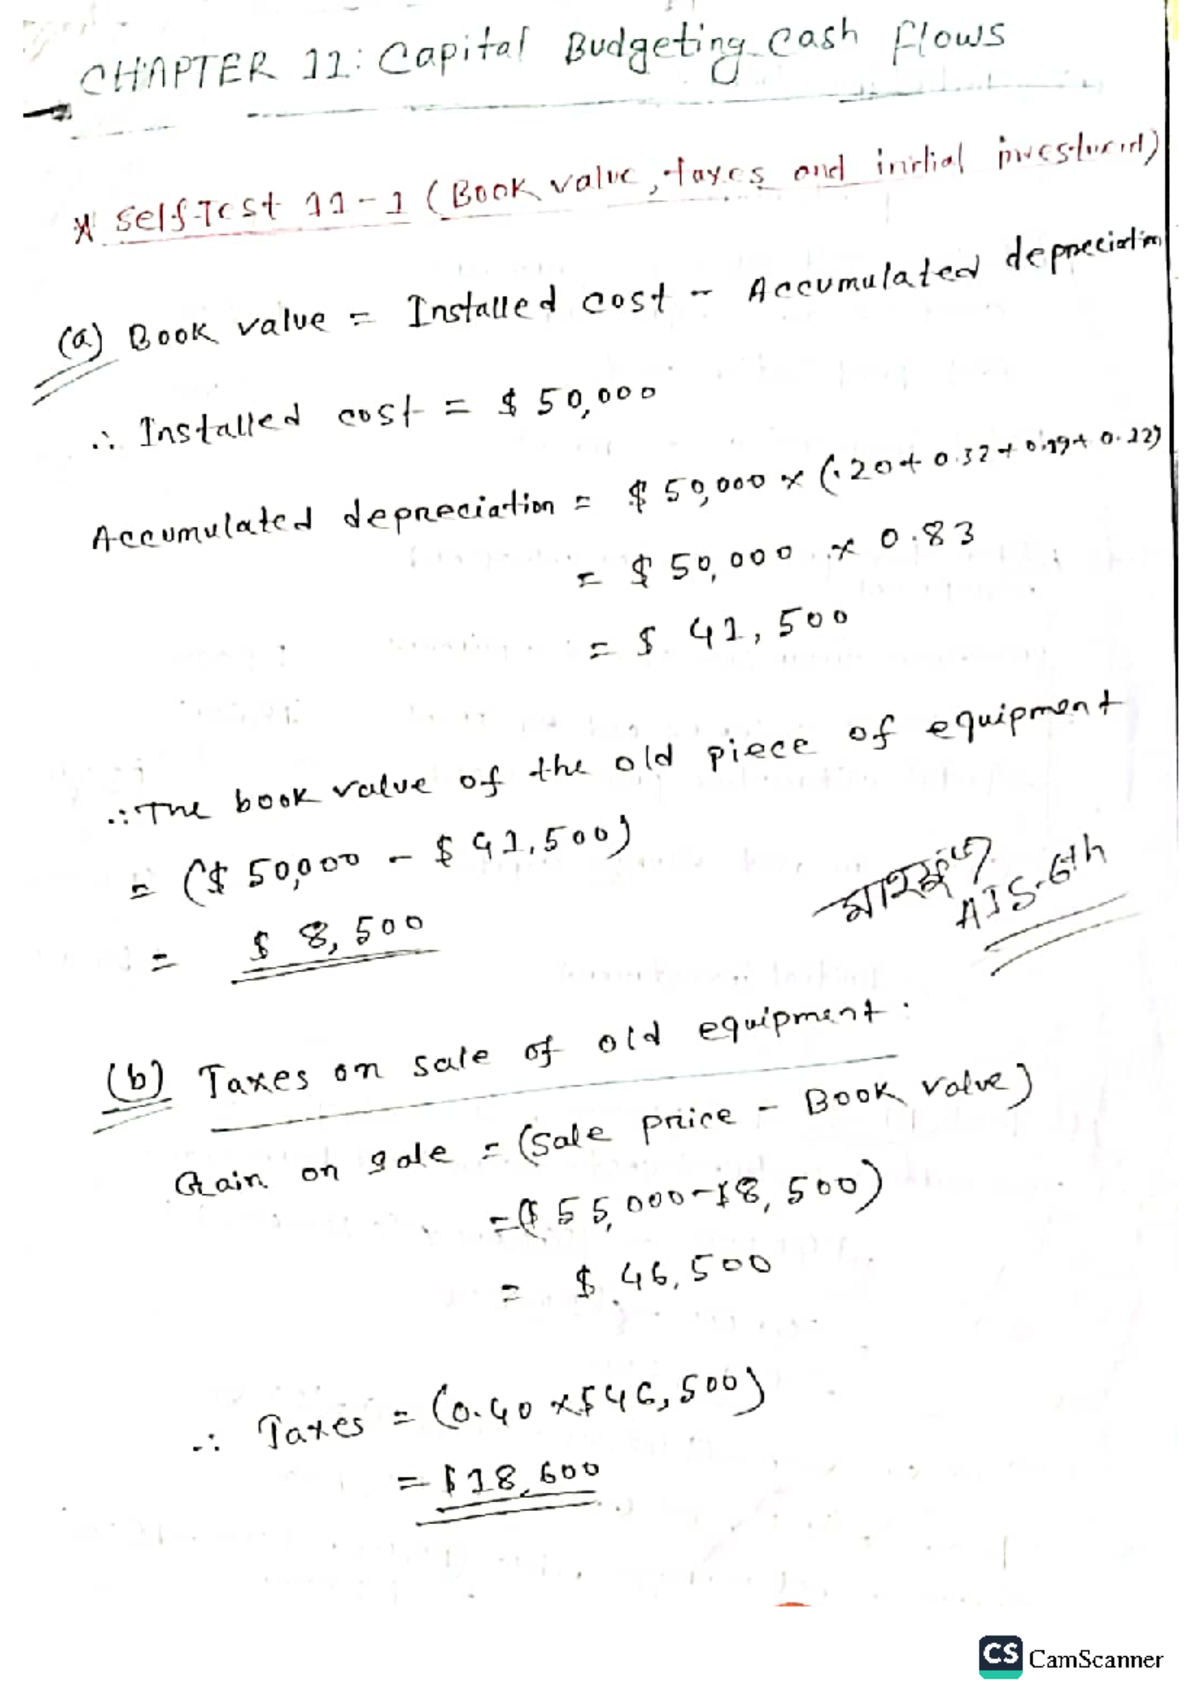 CHAPTER 11: Capital Budgeting Cash Flows
* Self-Test 11-1 (Book value, taxes and initial investment)
(a) Book value = Installed cost - Accumulated depreciation
∴ Installed cost = $ 50,000
Accumulated depreciation = $ 50,000 × (.20+ 0.32+ 0.19+ 0.12)
= $ 50,000 × 0.83
= $ 41,500
∴ The book value of the old piece of equipment
= ($ 50,000 - $ 41,500)
= $ 8,500
AIS-6th
(b) Taxes on sale of old equipment:
Gain on sale = (Sale price - Book value)
= ($ 55,000-$8,500)
= $ 46,500
∴ Taxes = (0.40 ×$46,500)
= $18,600
CS CamScanner